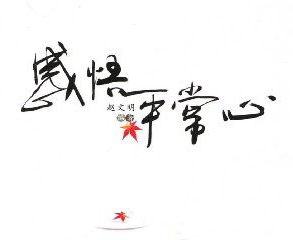 感悟平常心
赵文明
编著